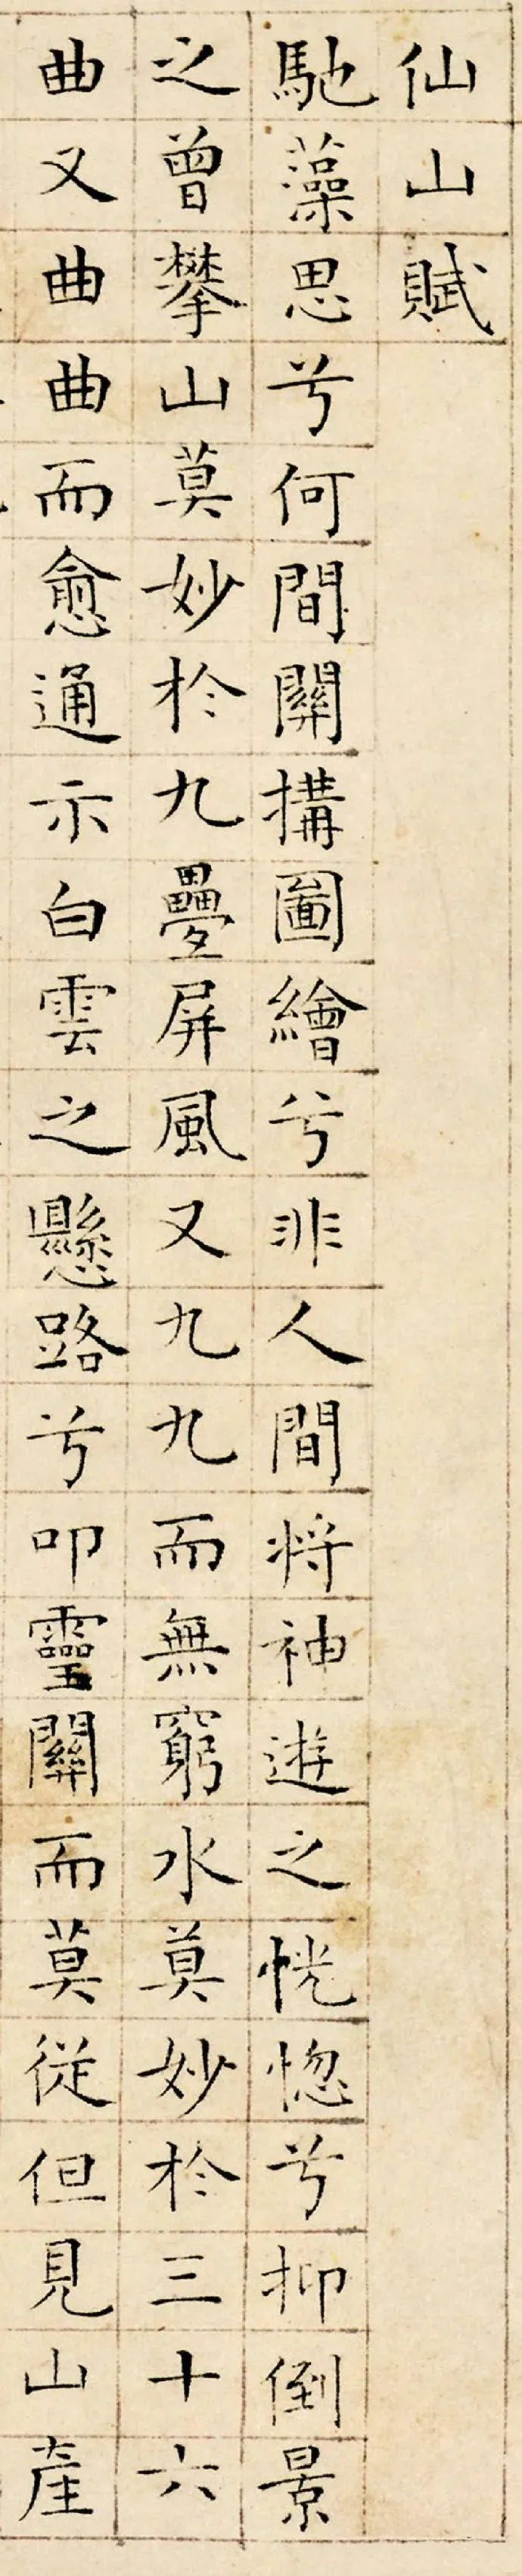 仙山賦
馳藻思兮何間關搆圖繪兮非人間將神遊之恍惚兮抑倒景
之曾攀山莫妙於九疊屏風又九九而無窮水莫妙於三十六
曲又曲曲而愈通示白雲之懸路兮叩靈關而莫從但見山產